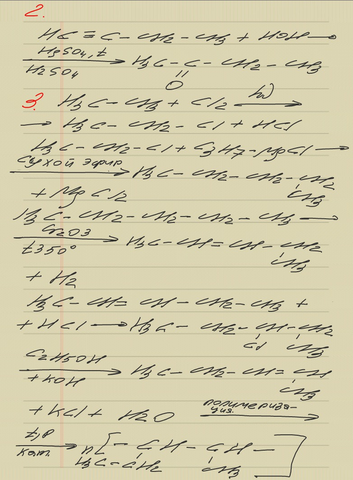 2.
HC ≡ C - CH2 - CH3 + HOH →
H2SO4, t
H2SO4 → H3C - C - CH2 - CH3
=
O
3. H3C - CH3 + Cl2 hν →
→ H3C - CH2 - Cl + HCl
H3C - CH2 - Cl + C3H7 - MgCl →
сухой эфир → H3C - CH2 - CH2 - CH2
CH3
+ MgCl2
H3C - CH2 - CH2 - CH2 - CH3 →
Cr2O3
t350° → H3C - CH = CH - CH2
CH3
+ H2
H3C - CH = CH - CH2 - CH3 +
+ HCl → H3C - CH2 - CH - CH2
Cl CH3
C2H5OH
+ KOH → H3C - CH2 - CH = CH
CH3
+ KCl + H2O полимериза-
ция →
t,p
кат. → n[- CH - CH -]
H3C - CH2 CH3